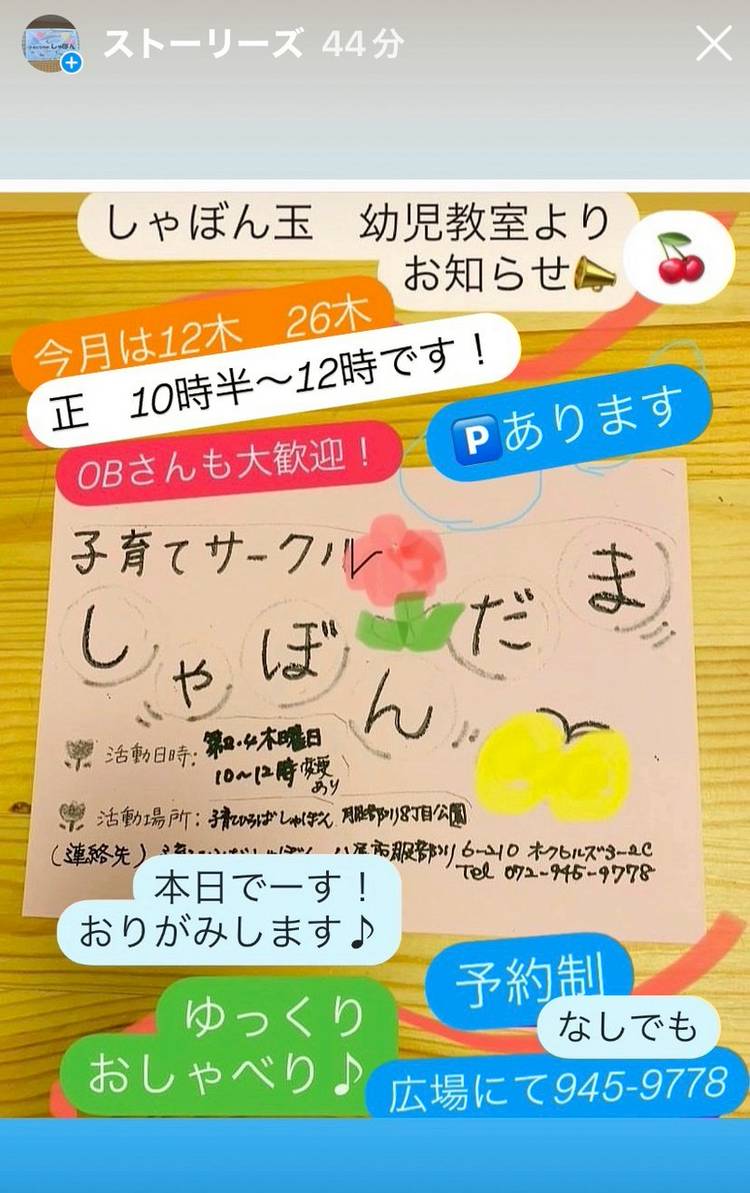 ストーリーズ 44分
しゃぼん玉　幼児教室より
お知らせ📣
🍒
今月は12木　26木
正　10時半〜12時です！
🅿️あります
OBさんも大歓迎！
子育てサークル
しゃぼんだま
活動日時: 第2・4木曜日
10〜12時 変更あり
活動場所: 子育てひろばしゃぼん 服部川8丁目公園
(連絡先)
市服部川6-210
Tel 072-945-9778
本日でーす！
おりがみします♪
予約制
なしでも
ゆっくり
おしゃべり♪
広場にて945-9778